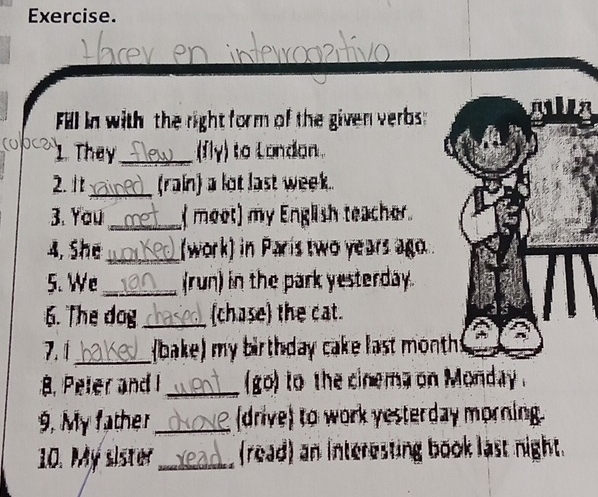 Exercise.
Hacer en interrogativo
Fill in with the right form of the given verbs:
colocar
1. They flew (fly) to London.
2. It rained (rain) a lot last week.
3. You met ( meet) my English teacher.
4, She worked (work) in Paris two years ago.
5. We ran (run) in the park yesterday.
6. The dog chased (chase) the cat.
7. I baked (bake) my birthday cake last month
8. Peter and I went (go) to the cinema on Monday.
9. My father drove (drive) to work yesterday morning.
10. My sister read (read) an interesting book last night.